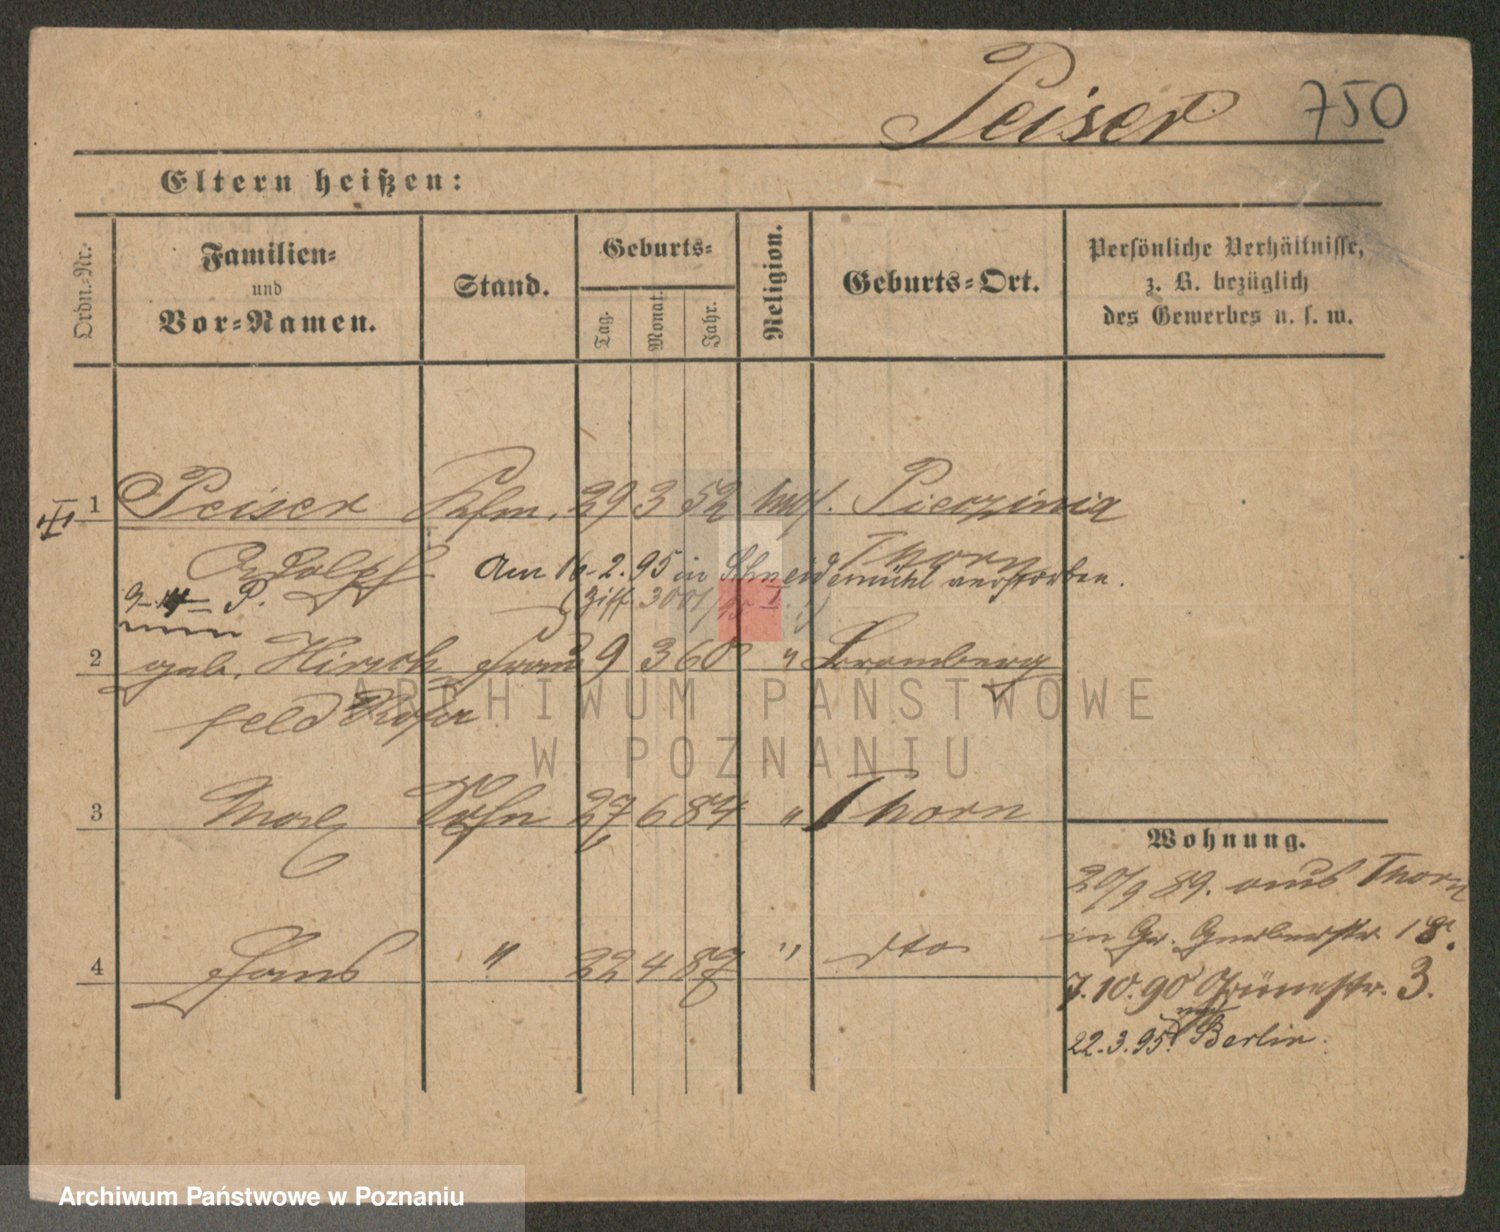 Peiser 750
Eltern heißen:
Ordn.-Nr.
Familien-
und
Vor-Namen.
Stand.
Geburts-
Tag.
Monat.
Jahr.
Religion.
Geburts-Ort.
Persönliche Verhältnisse,
z. B. bezüglich
des Gewerbes u. s. w.
1 Peiser Kfm. 29 3 52 mos. Pieczinia
Adolph Thorn
Am 16.2.95 in Schneidemühl verstorben.
P.
2 geb. Hirsch Frau 9 3 60 " Bromberg
feld Rosa
ARCHIWUM PAŃSTWOWE
W POZNANIU
3 Max Sohn 27 6 84 " Thorn
Wohnung.
20/9 89. aus Thorn
in Gr. Gerberstr. 18.
4 Hans " 22 4 87 " dto
7.10.90 Grünestr. 3.
22.3.95. nach Berlin.
Archiwum Państwowe w Poznaniu